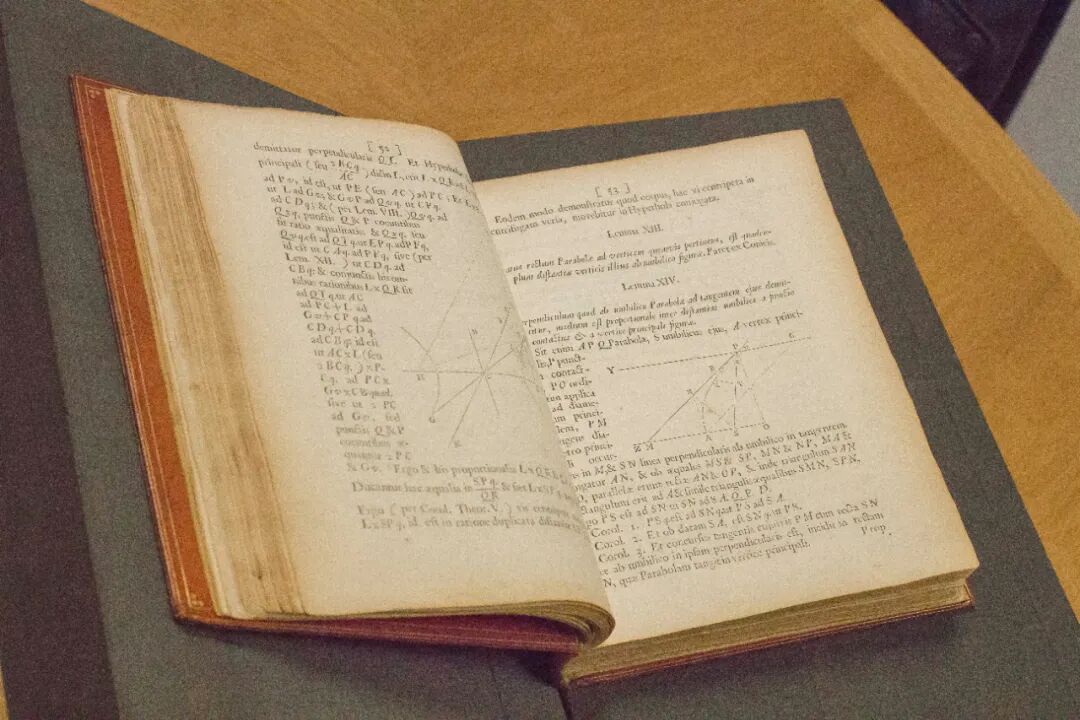 [ 52 ]
demittatur perpendicularis QT. Et Hyperbolæ
principali ( seu 2 BCq. / AC ) dicto L, erit L x QR ad
ad Pv, id est, ut PE ( seu AC ) ad PC; Et
ut L ad Gv; & GvP ad Qvq. ut CPq.
ad CDq; & ( per Lem. VIII. ) Qvq. ad
Qxq, punctis Q & P coeuntibus
fit ratio æqualitatis; & Qxq. seu
Qvq. est ad QTq. ut EPq. ad PFq,
id est ut CAq. ad PFq, sive (per
Lem. XII. ) ut CDq. ad
CBq: & conjunctis his om-
nibus rationibus L x QR fit
ad QTq. ut AC
ad PC + L ad
Gv + CPq. ad
CDq + CDq.
ad CBq: id est
ut AC x L (seu
2 BCq. ) x P-
Cq. ad PC x
Gv x CBquad.
sive ut 2 PC
ad Gv, sed
punctis Q & P
coeuntibus æ-
quantur 2 PC
& Gv. Ergo & his proportionalia L x QR
Ducantur hæc æqualia in SPq. / QR & fiet L x SP
Ergo ( per Corol. Theor. V. ) vis
L x SPq. id est in ratione duplicata distantiæ
[ 53 ]
Eodem modo demonstratur quod corpus, hac vi centripeta in
centrifugam versa, movebitur in Hyperbola conjugata.
Lemma XIII.
rectum Parabolæ ad verticem quemvis pertinens, est quadru-
plum distantiæ verticis illius ab umbilico figuræ. Patet ex Conicis.
Lemma XIV.
quod ab umbilico Parabolæ ad tangentem ejus demit-
titur, medium est proportionale inter distantias umbilici a puncto
contactus & a vertice principali figuræ.
Sit enim APQ Parabola, S umbilicus ejus, A vertex princi-
P punct-
contact-
PO ordi-
applica
ad diame-
princi-
PM
dia-
princi-
occur-
in M, & SN linea perpendicularis ab umbilico in tangentem.
AN, & ob æquales MS & SP, MN & NP, MA &
parallelæ erunt rectæ AN & OP, & inde triangulum SAN
rectangulum erit ad A & simile triangulis æqualibus SMN, SPN.
PS est ad SN ut SN ad SA. Q. E. D.
Corol. 1. PSq. est ad SNq. ut PS ad SA.
Corol. 2. Et ob datam SA, est SNq. ut PS.
Corol. 3. Et concursus tangentis cujusvis PM cum recta SN
ab umbilico in ipsam perpendicularis est, incidit in rectam
N, quæ Parabolam tangit in vertice principali.
Prop.